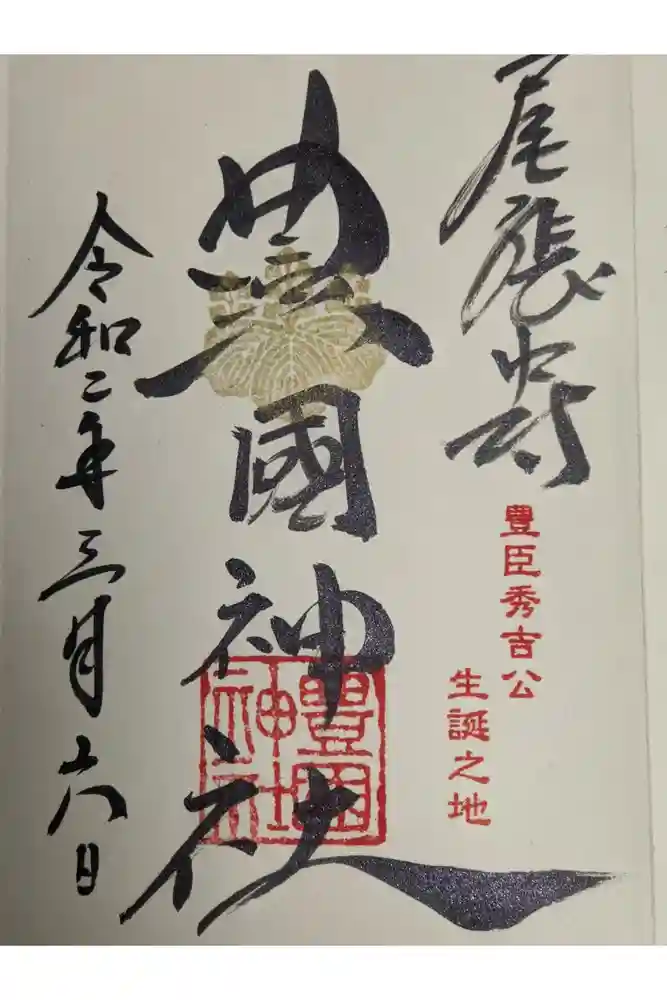 尾張中村
豊臣秀吉公
生誕之地
豊國神社
豊國神社
令和二年三月十八日